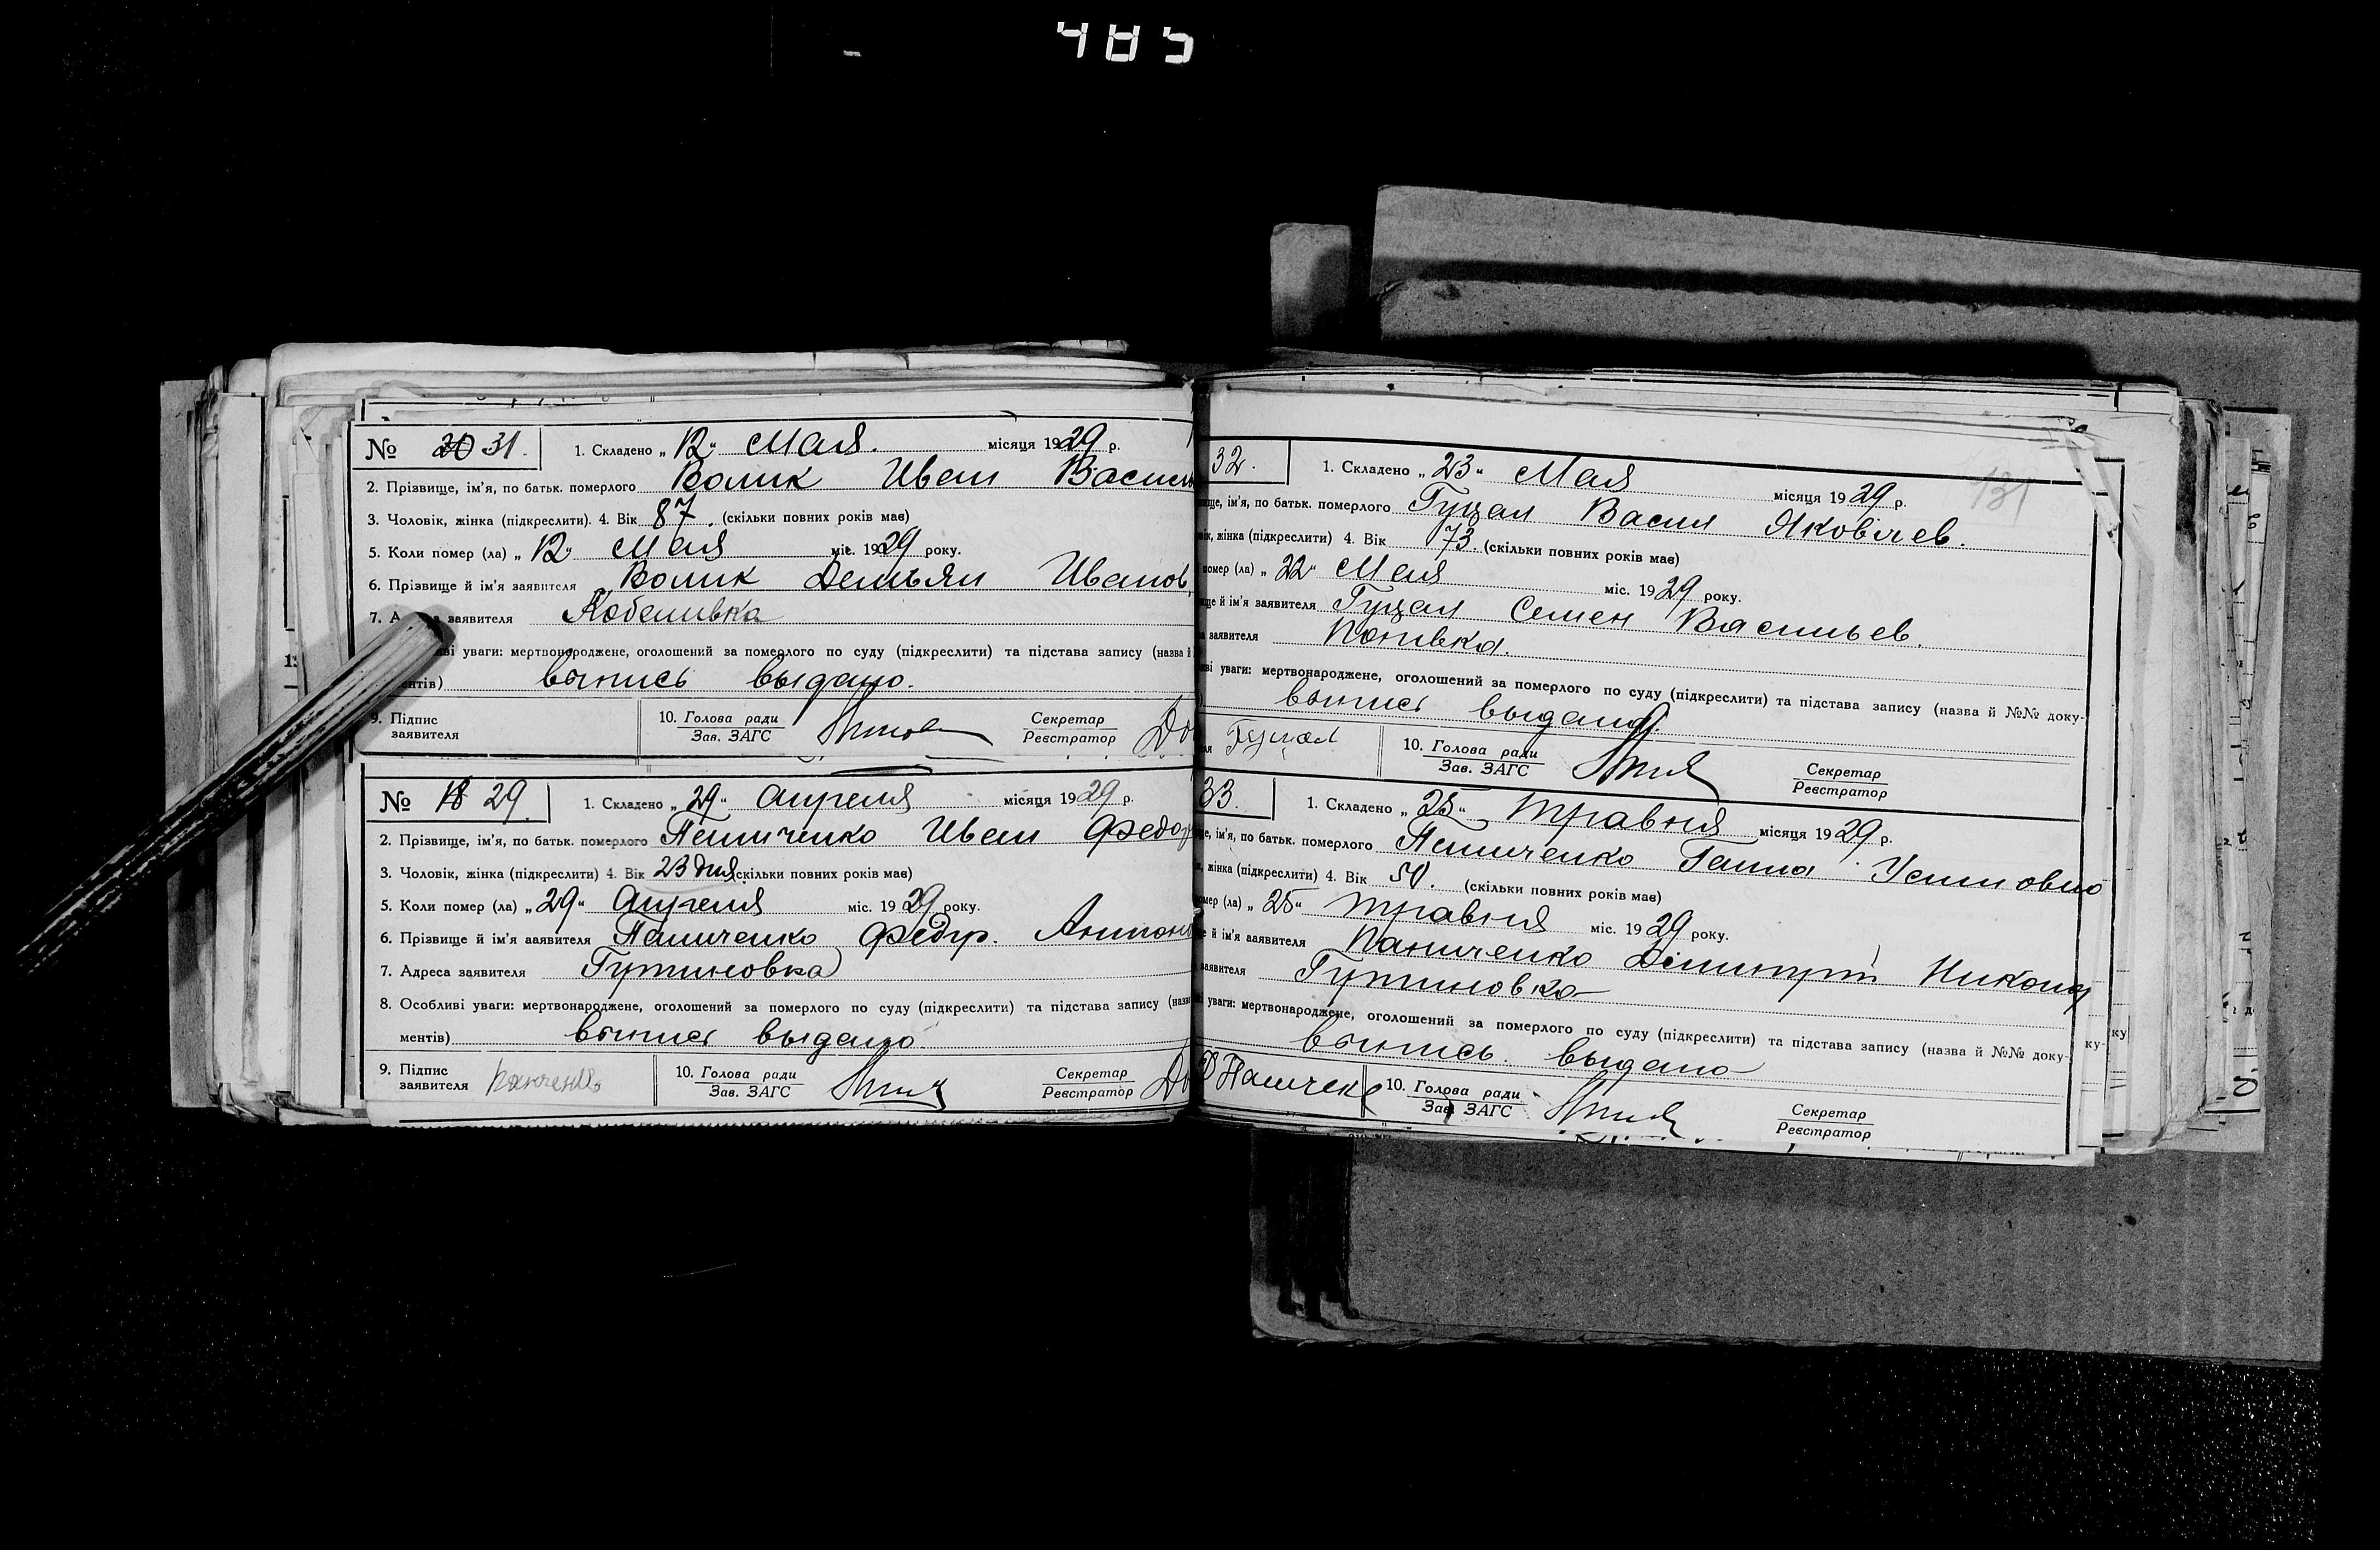 485
№ 20 31.
1. Складено „12“ Мая. місяця 1929 р.
2. Прізвище, ім'я, по батьк. померлого Волик Иван Васил
3. Чоловік, жінка (підкреслити). 4. Вік 87. (скільки повних років має)
5. Коли помер (ла) „12“ Мая міс. 1929 року.
6. Прізвище й ім'я заявителя Волик Демьян Иванов
7. А заявителя Кобеливка
ві уваги: мертвонароджене, оголошений за померлого по суду (підкреслити) та підстава запису (назва й
ентів) выпись выдано.
9. Підпис заявителя
10. Голова ради
Зав. ЗАГС
Секретар
Реєстратор
№ 18 29.
1. Складено „29“ Апреля місяця 1929 р.
2. Прізвище, ім'я, по батьк. померлого Паниченко Иван Федор
3. Чоловік, жінка (підкреслити) 4. Вік 23 дня скільки повних років має)
5. Коли помер (ла) „29“ Апреля міс. 1929 року.
6. Прізвище й ім'я заявителя Паниченко Федор. Антон
7. Адреса заявителя Гутиновка
8. Особливі уваги: мертвонароджене, оголошений за померлого по суду (підкреслити) та підстава запису (назва
ментів) выпись выдано
9. Підпис заявителя
10. Голова ради
Зав. ЗАГС
Секретар
Реєстратор
131
32.
1. Складено „23“ Мая місяця 1929 р.
ище, ім'я, по батьк. померлого Гуцал Васил Яковлев.
вік, жінка (підкреслити) 4. Вік 73. (скільки повних років має)
помер (ла) „22“ Мая міс. 1929 року.
ище й ім'я заявителя Гуцал Семен Васильев.
заявителя Попивка.
ві уваги: мертвонароджене, оголошений за померлого по суду (підкреслити) та підстава запису (назва й №№ доку-
) выпись выдано.
ля Гуцал
10. Голова ради
Зав. ЗАГС
Секретар
Реєстратор
33.
1. Складено „25“ Травня місяця 1929 р.
ще, ім'я, по батьк. померлого Паниченко Ганна Устиновно
к, жінка (підкреслити) 4. Вік 50. (скільки повних років має)
омер (ла) „25“ травня міс. 1929 року.
е й ім'я заявителя Паниченко Дімитрт Никон
заявителя Гутиновка
і уваги: мертвонароджене, оголошений за померлого по суду (підкреслити) та підстава запису (назва й №№ доку-
выпись. выдано
10. Голова ради
Зав. ЗАГС
Секретар
Реєстратор